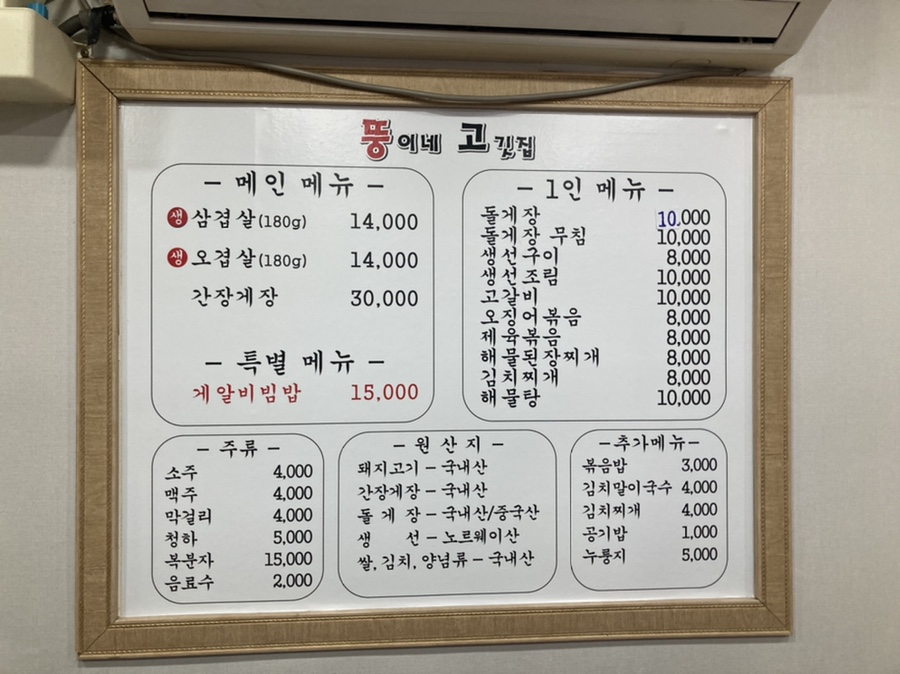 뚱이네 고깃집
- 메인 메뉴 -
생 삼겹살(180g) 14,000
생 오겹살(180g) 14,000
간장게장 30,000
- 특별 메뉴 -
게알비빔밥 15,000
- 1인 메뉴 -
돌게장 10.000
돌게장 무침 10,000
생선구이 8,000
생선조림 10,000
고갈비 10,000
오징어볶음 8,000
제육볶음 8,000
해물된장찌개 8,000
김치찌개 8,000
해물탕 10,000
- 주류 -
소주 4,000
맥주 4,000
막걸리 4,000
청하 5,000
복분자 15,000
음료수 2,000
- 원산지 -
돼지고기 - 국내산
간장게장 - 국내산
돌게장 - 국내산/중국산
생선 - 노르웨이산
쌀, 김치, 양념류 - 국내산
-추가메뉴-
볶음밥 3,000
김치말이국수 4,000
김치찌개 4,000
공기밥 1,000
누룽지 5,000